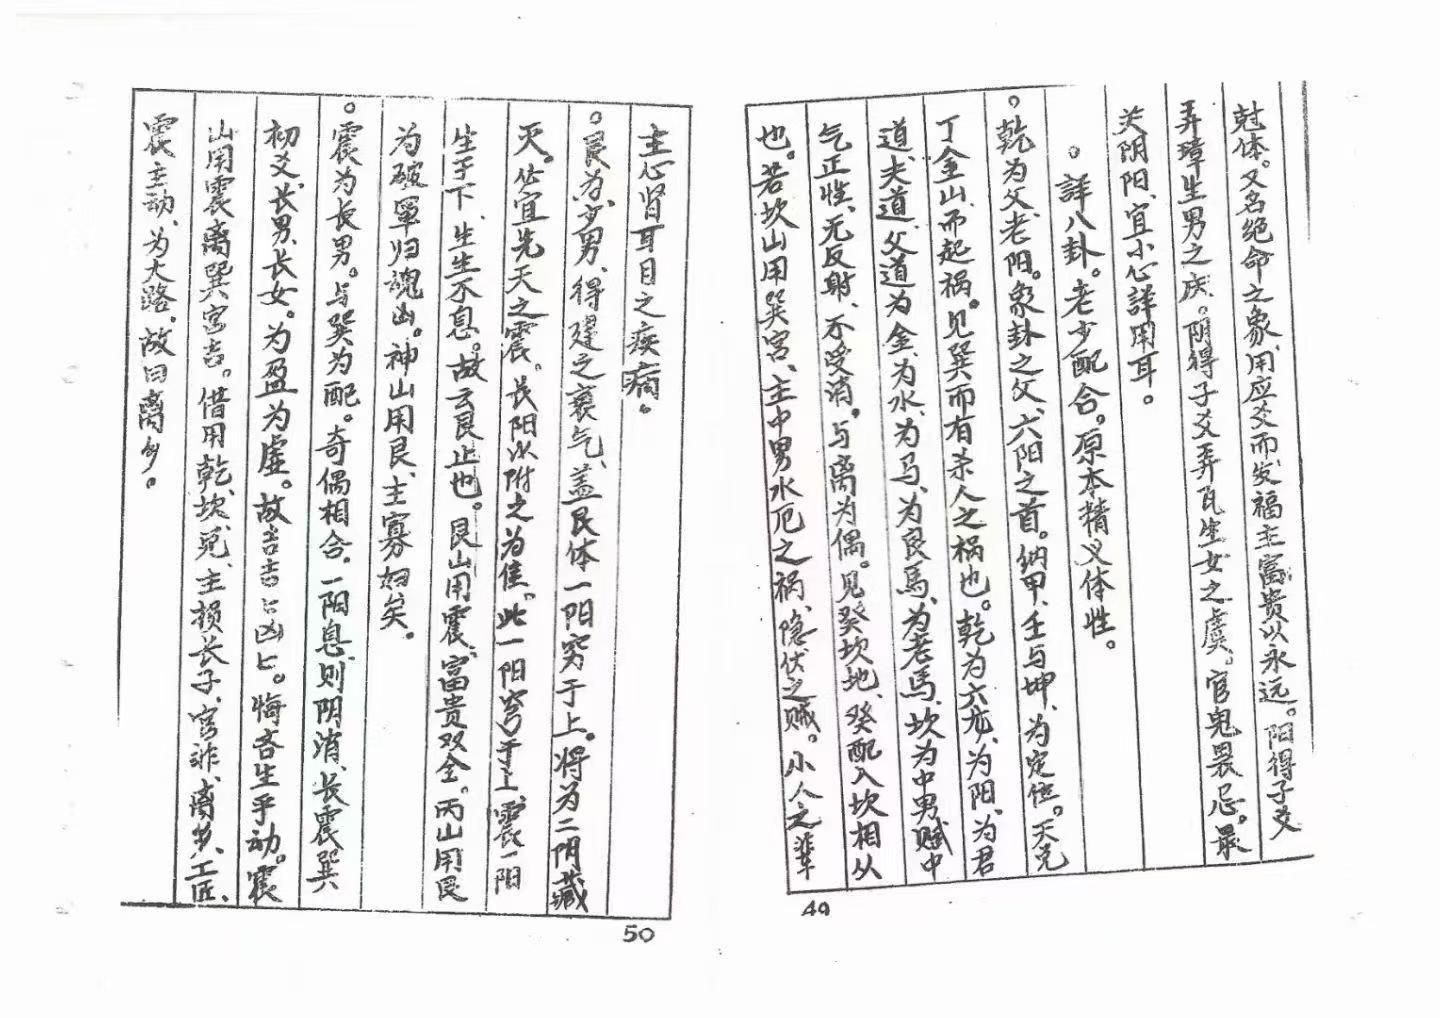 尅体。又名绝命之象、用应爻而发福主富贵以永远。阳得子爻
弄璋生男之庆。阴得子爻弄瓦生女之虞。官鬼畏忌。最
关阴阳、宜小心詳用耳。
。詳八卦。老少配合。原本精义体性。
。乾为父、老阳。象卦之父、六阳之首。纳甲、壬与坤、为定位。天克
丁金山而起祸。见巽而有杀人之祸也。乾为六龙、为阳、为君
道、夫道、父道为金、为水、为马、为良馬、为老馬、坎为中男赋中
气正性、无反射、不受消。与离为偶。见癸坎地、癸配入坎相从
也。若坎山用巽宫、主中男水厄之祸、隐伏之贼。小人之輩
49
主心肾耳目之疾病。
。艮为少男、得建之衰气、盖艮体一阳穷于上。将为二阴藏
灭。佐宜先天之震。长阳以附之为佳。此一阳穷于上、震一阳
生于下、生生不息。故云艮止也。艮山用震、富贵双全。丙山用艮
为破軍归魂山。神山用艮、主寡妇矣。
。震为长男。与巽为配。奇偶相合、一阳息、则阴消、长震巽
初爻、长男、长女。为盈为虚。故吉吉凶匕。悔吝生乎动。震
山用震离巽宫吉。借用乾、坎、兑、主损长子、官非、离乡、工匠、
震主动、为大路、故曰离乡。
50